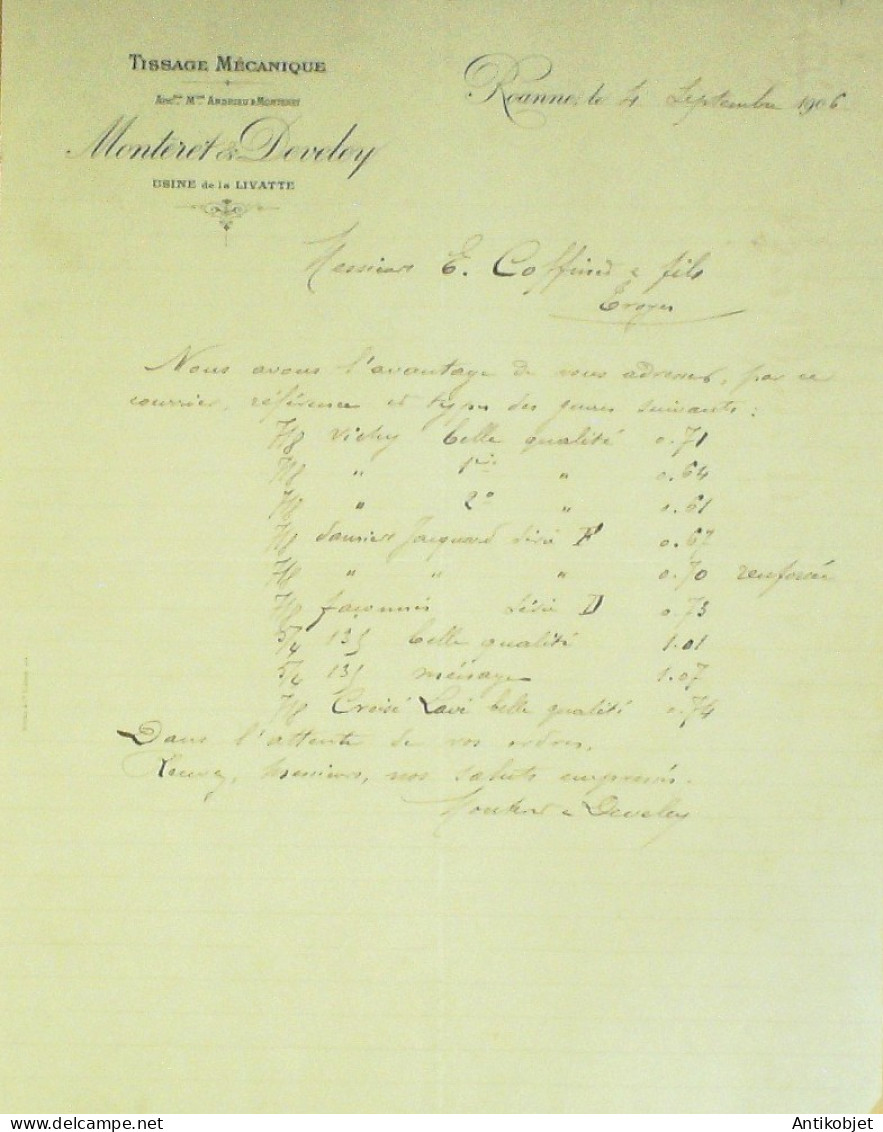 TISSAGE MÉCANIQUE
Ancne Mon ANDRIEU & MONTERET
Monteret & Develey
USINE de la LIVATTE
Roanne, le 4 Septembre 1906
Messieurs E. Coffinet & fils
Troyes
Nous avons l'avantage de vous adresser, par ce
courrier, référence et types des genres suivants :
7/8 Vichy belle qualité 0.71
7/8 " 1re " 0.64
7/8 " 2e " 0.61
7/8 Jacquard série F 0.67
7/8 " " " 0.70 renforcée
7/8 façonnés série D 0.73
5/4 belle qualité 1.01
5/4 ménage 1.07
7/8 Croisé belle qualité 0.74
Dans l'attente de vos ordres,
Recevez, Messieurs, nos saluts empressés.
Monteret & Develey
Antikobjet